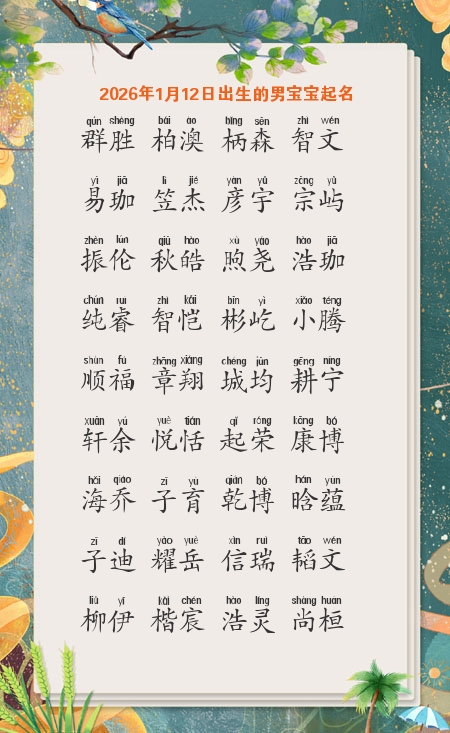 2026年1月12日出生的男宝宝起名
qún shèng bǎi ào bǐng sēn zhì wén
群胜 柏澳 柄森 智文
yì jiā lì jié yàn yǔ zōng yǔ
易珈 笠杰 彦宇 宗屿
zhèn lún qiū hào xù yáo hào jiā
振伦 秋皓 煦尧 浩珈
chún ruì zhì kǎi bīn yì xiǎo téng
纯睿 智恺 彬屹 小腾
shùn fú zhāng xiáng chéng jūn gēng níng
顺福 章翔 城均 耕宁
xuān yú yuè tián qǐ róng kāng bó
轩余 悦恬 起荣 康博
hǎi qiáo zǐ yù qián bó hán yùn
海乔 子育 乾博 晗蕴
zǐ dí yào yuè xìn ruì tāo wén
子迪 耀岳 信瑞 韬文
liǔ yī kǎi chén hào líng shàng huán
柳伊 楷宸 浩灵 尚桓